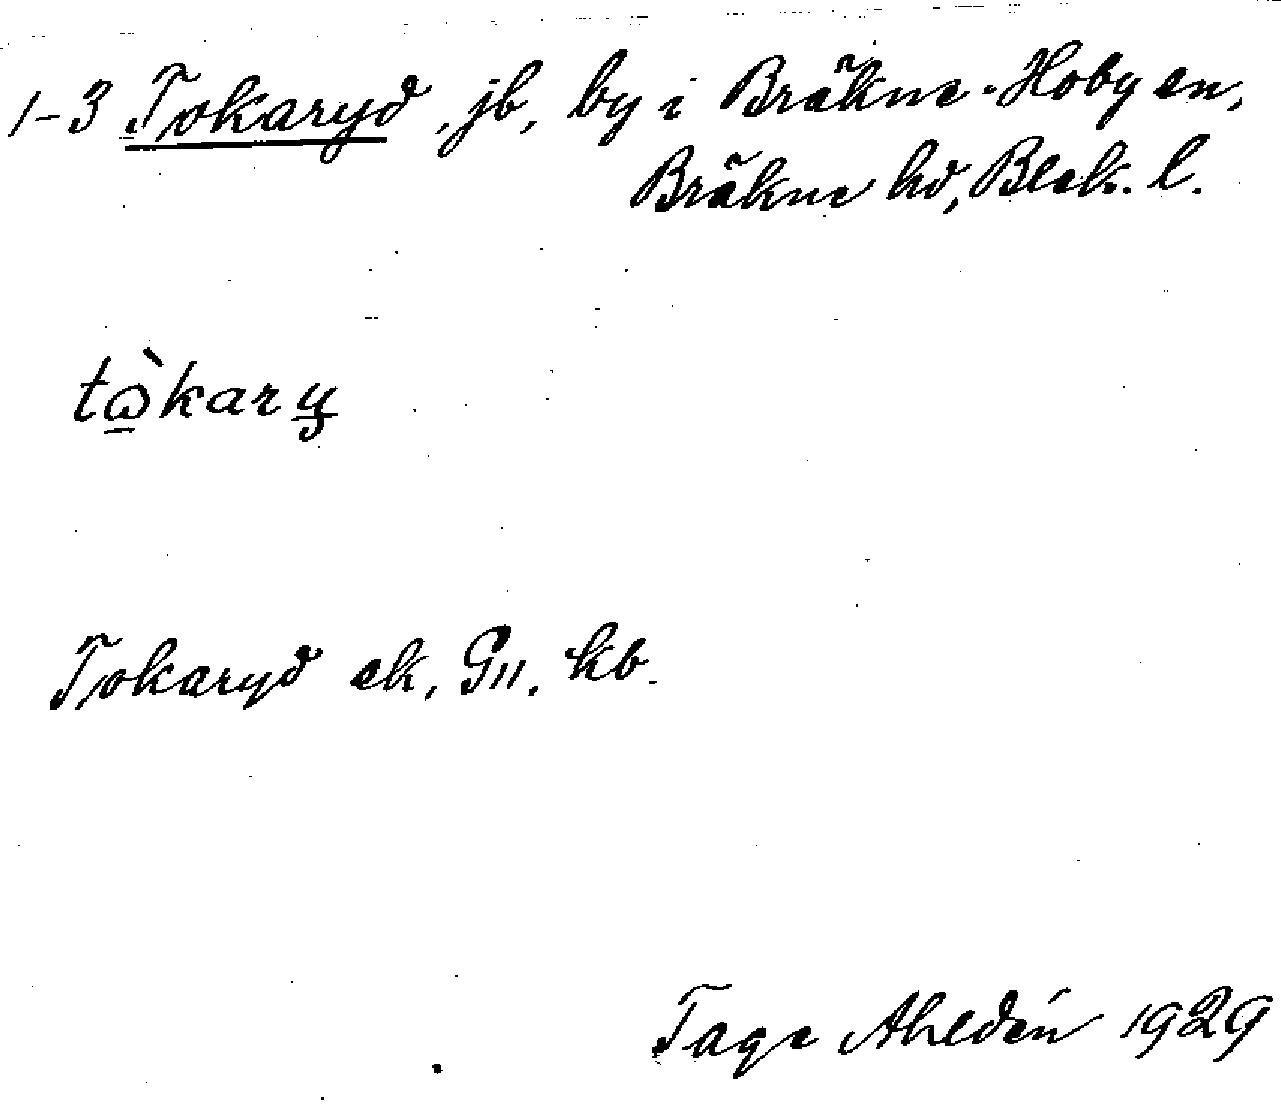 1-3 Tokaryd, jb, by i Bräkne-Hoby sn,
Bräkne hd, Blek. l.
tὼkary
Tokaryd ek, G11. kb.
Tage Ahldén 1929